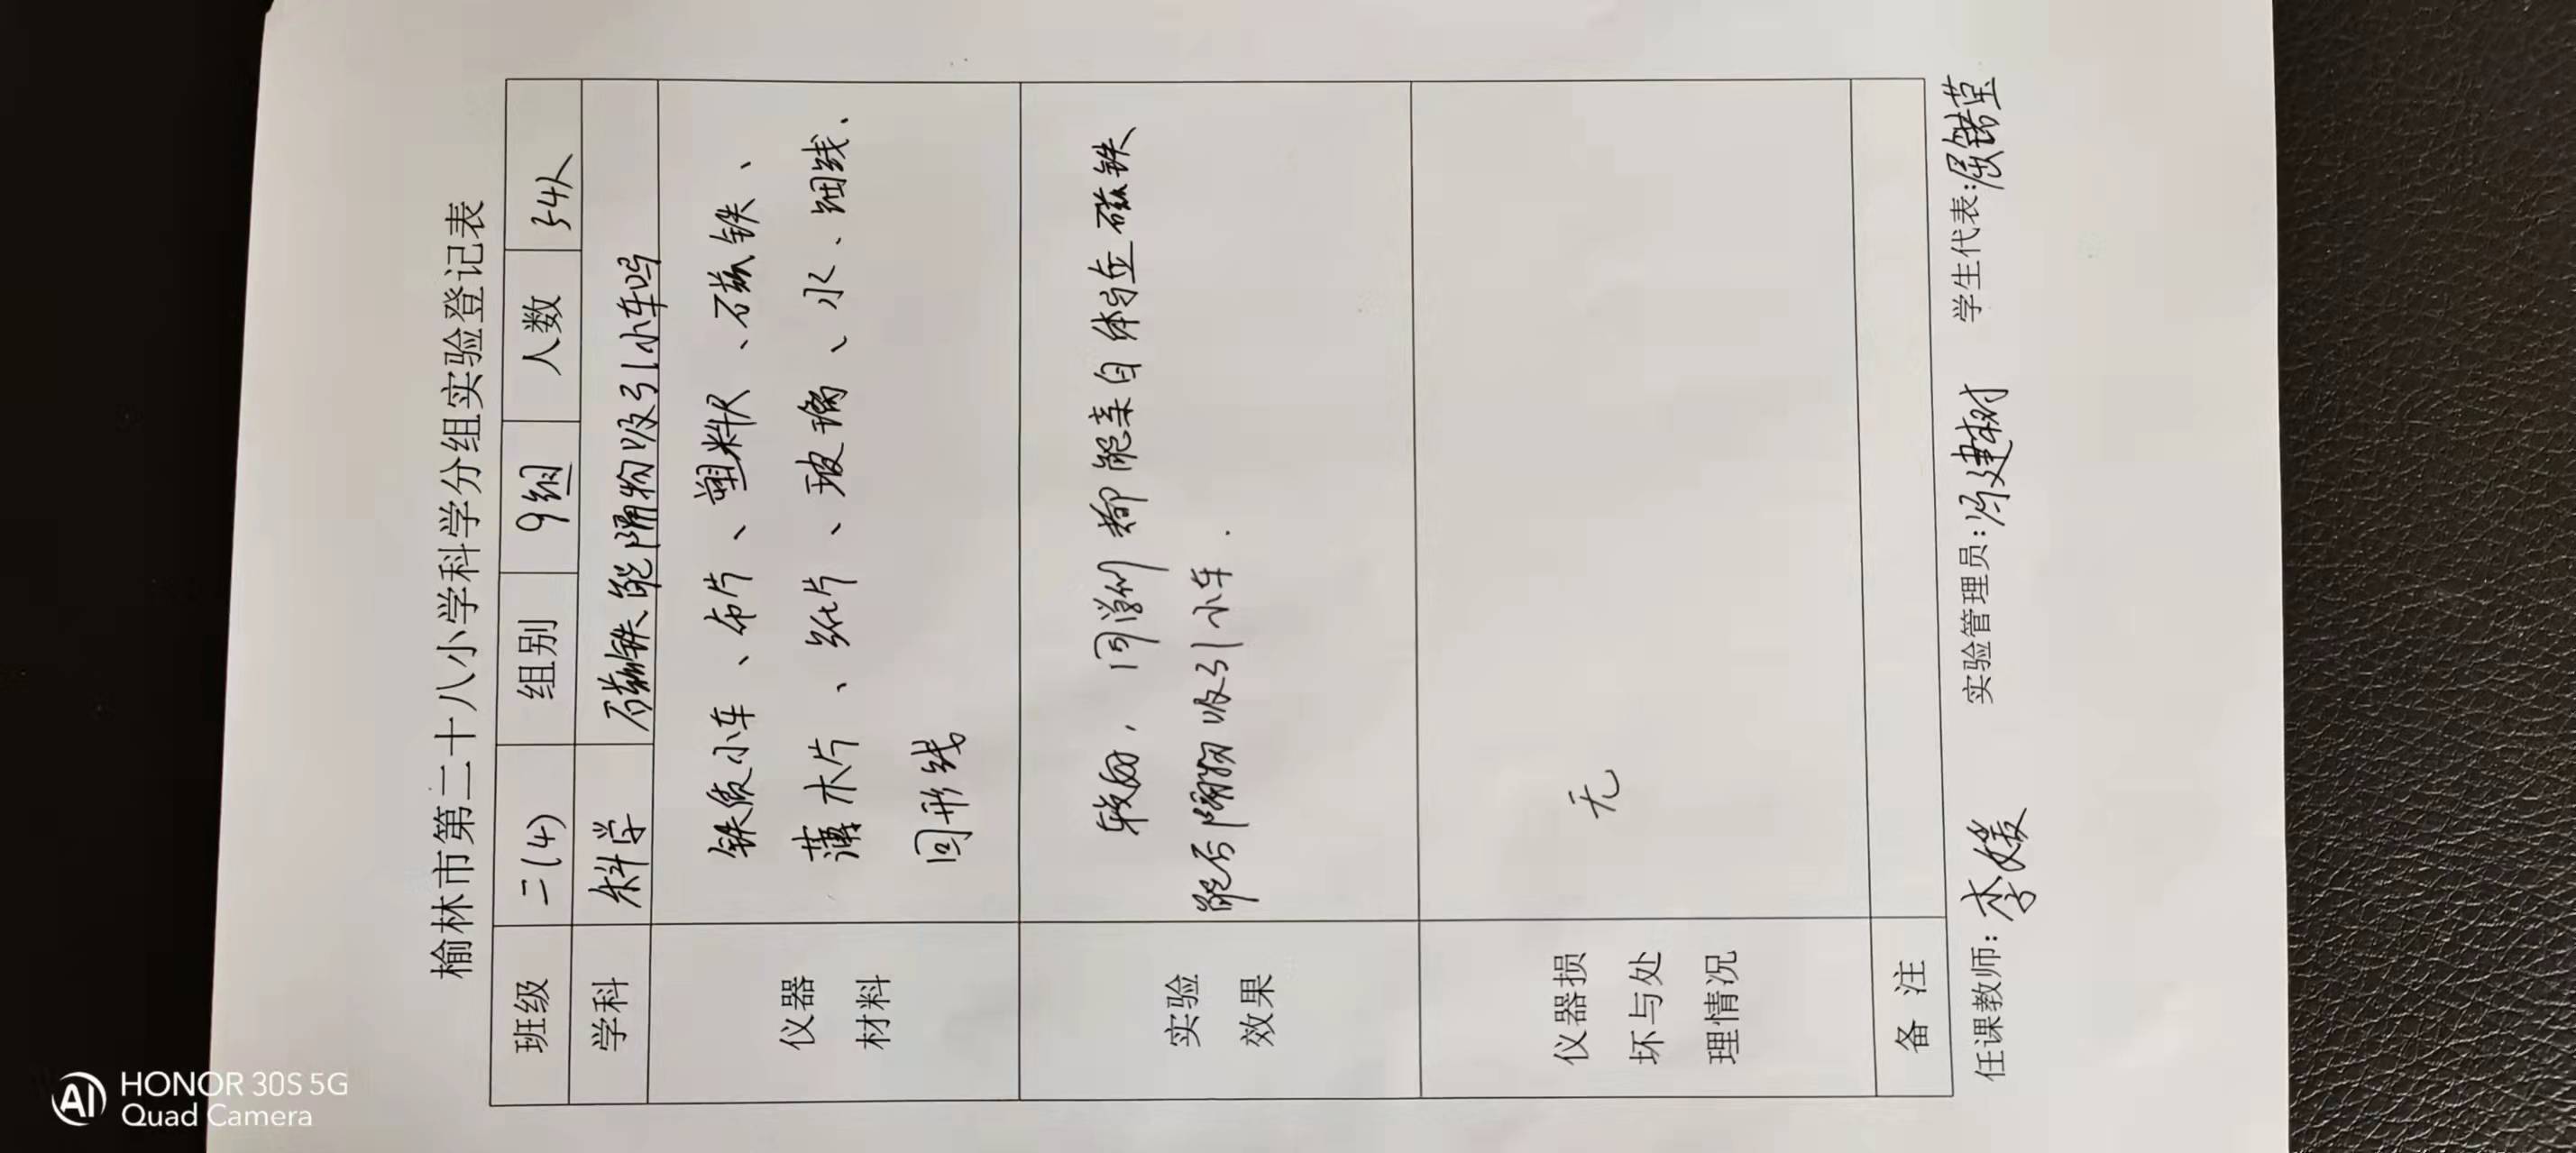 榆林市第二十八小学科学分组实验登记表
班级 二(4) 组别 9组 人数 34人
学科 科学 磁铁能隔物吸引小车吗
仪器材料
铁皮小车、布片、塑料尺、磁铁、
薄木片、纸片、玻璃、水、细线、
回形线
实验效果
较好,同学们都能亲自体会磁铁
能否隔物吸引小车.
仪器损坏与处理情况
无
备注
任课教师:李媛 实验管理员:冯建树 学生代表:
HONOR 30S 5G
Quad Camera
AI